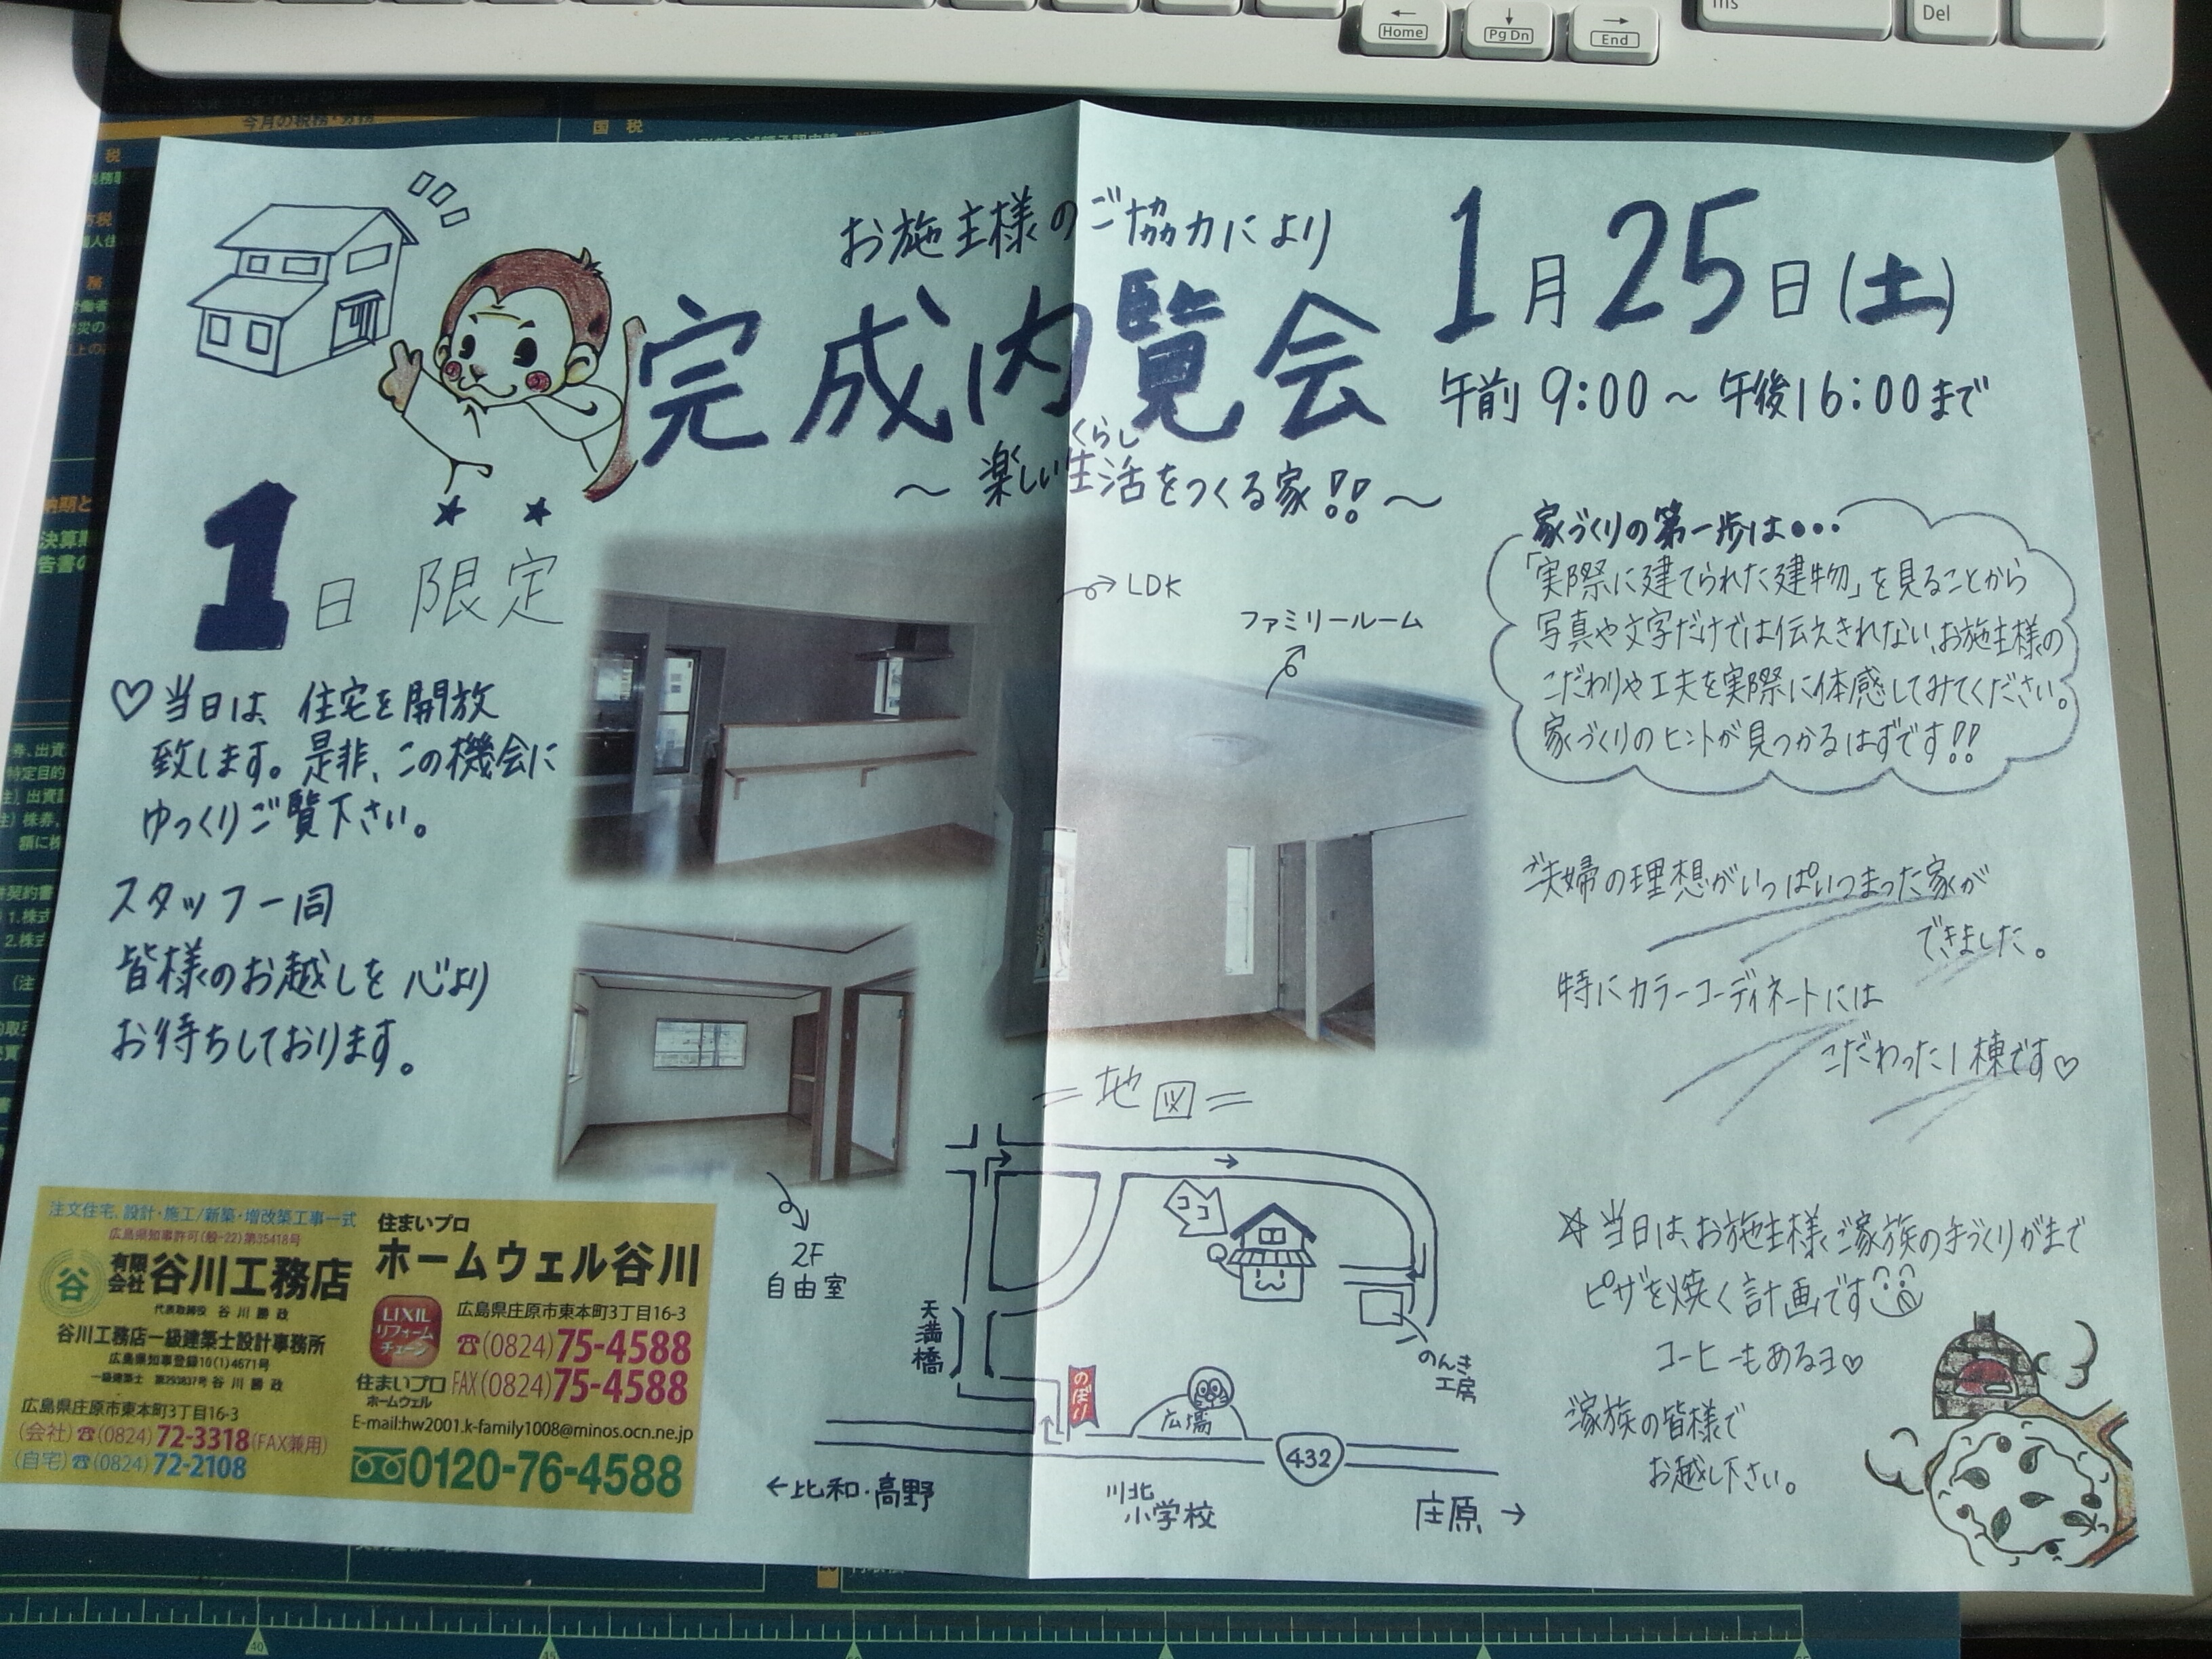 Home
Pg Dn
End
Ins
Del
今月の税務・労務
国 税
お施主様のご協力により
完成内覧会
1月25日(土)
午前 9:00 ~ 午後16:00まで
くらし
~ 楽しい生活をつくる家!! ~
1日 限定
♡当日は、住宅を開放
致します。是非、この機会に
ゆっくりご覧下さい。
スタッフ一同
皆様のお越しを心より
お待ちしております。
LDK
ファミリールーム
2F
自由室
家づくりの第一歩は・・・
「実際に建てられた建物」を見ることから
写真や文字だけでは伝えきれない、お施主様の
こだわりや工夫を実際に体感してみてください。
家づくりのヒントが見つかるはずです!!
ご夫婦の理想がいっぱいつまった家が
できました。
特にカラーコーディネートには
こだわった1棟です♡
=地図=
ココ
天満橋
のぼり
広場
のんき
工房
432
←比和・高野
川北
小学校
庄原→
☆当日は、お施主様ご家族の手づくりがまで
ピザを焼く計画です
コーヒーもあるヨ♡
ご家族の皆様で
お越し下さい。
注文住宅、設計・施工/新築・増改築工事一式
広島県知事許可(般-22)第35418号
谷
有限会社谷川工務店
代表取締役 谷川勝政
谷川工務店一級建築士設計事務所
広島県知事登録10(1)4671号
一級建築士 第293837号 谷川勝政
広島県庄原市東本町3丁目16-3
(会社)☎(0824)72-3318(FAX兼用)
(自宅)☎(0824)72-2108
住まいプロ
ホームウェル谷川
LIXIL
リフォーム
チェーン
住まいプロ
ホームウェル
広島県庄原市東本町3丁目16-3
☎(0824)75-4588
FAX(0824)75-4588
E-mail:hw2001.k-family1008@minos.ocn.ne.jp
0120-76-4588
40
45